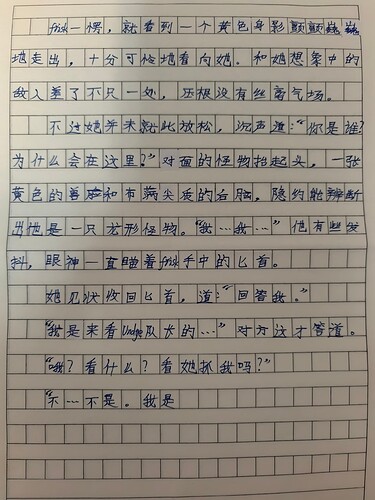 frisk一愣，就看到一个黄色身影颤颤巍巍
地走出，十分可怜地看向她。和她想象中的
敌人差了不只一处，压根没有丝毫气场。
不过她并未就此放松，沉声道：“你是谁？
为什么会在这里？”对面的怪物抬起头，一张
黄色的兽脸和布满尖质的白脑，隐约能辨断
出他是一只龙形怪物。“我……我……”他有些发
抖，眼神一直瞄着frisk手中的匕首。
她见状收回匕首，道：“回答我。”
“我是来看Undyne队长的……”对方这才答道。
“哦？看什么？看她抓我吗？”
“不……不是。我是